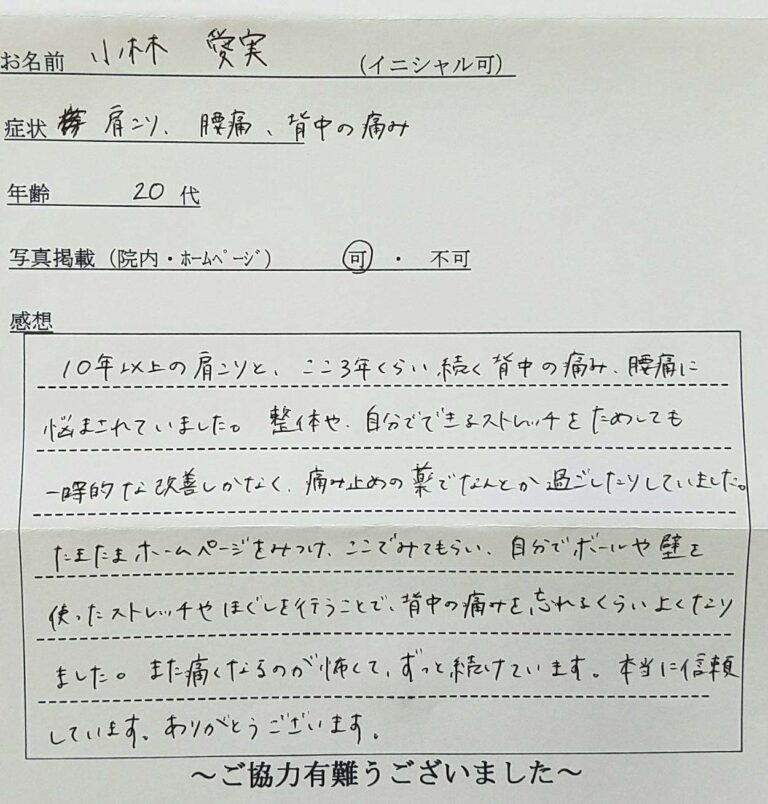 お名前 小林 愛実 (イニシャル可)
症状 肩こり、腰痛、背中の痛み
年齢 20 代
写真掲載(院内・ホームページ) 可 ・ 不可
感想
10年以上の肩こりと、ここ3年くらい続く背中の痛み、腰痛に
悩まされていました。整体や、自分でできるストレッチをためしても
一時的な改善しかなく、痛み止めの薬でなんとか過ごしたりしていました。
たまたまホームページをみつけ、ここでみてもらい、自分でボールや壁を
使ったストレッチやほぐしを行うことで、背中の痛みを忘れるくらいよくなり
ました。また痛くなるのが怖くて、ずっと続けています。本当に信頼
しています。ありがとうございます。
〜ご協力有難うございました〜